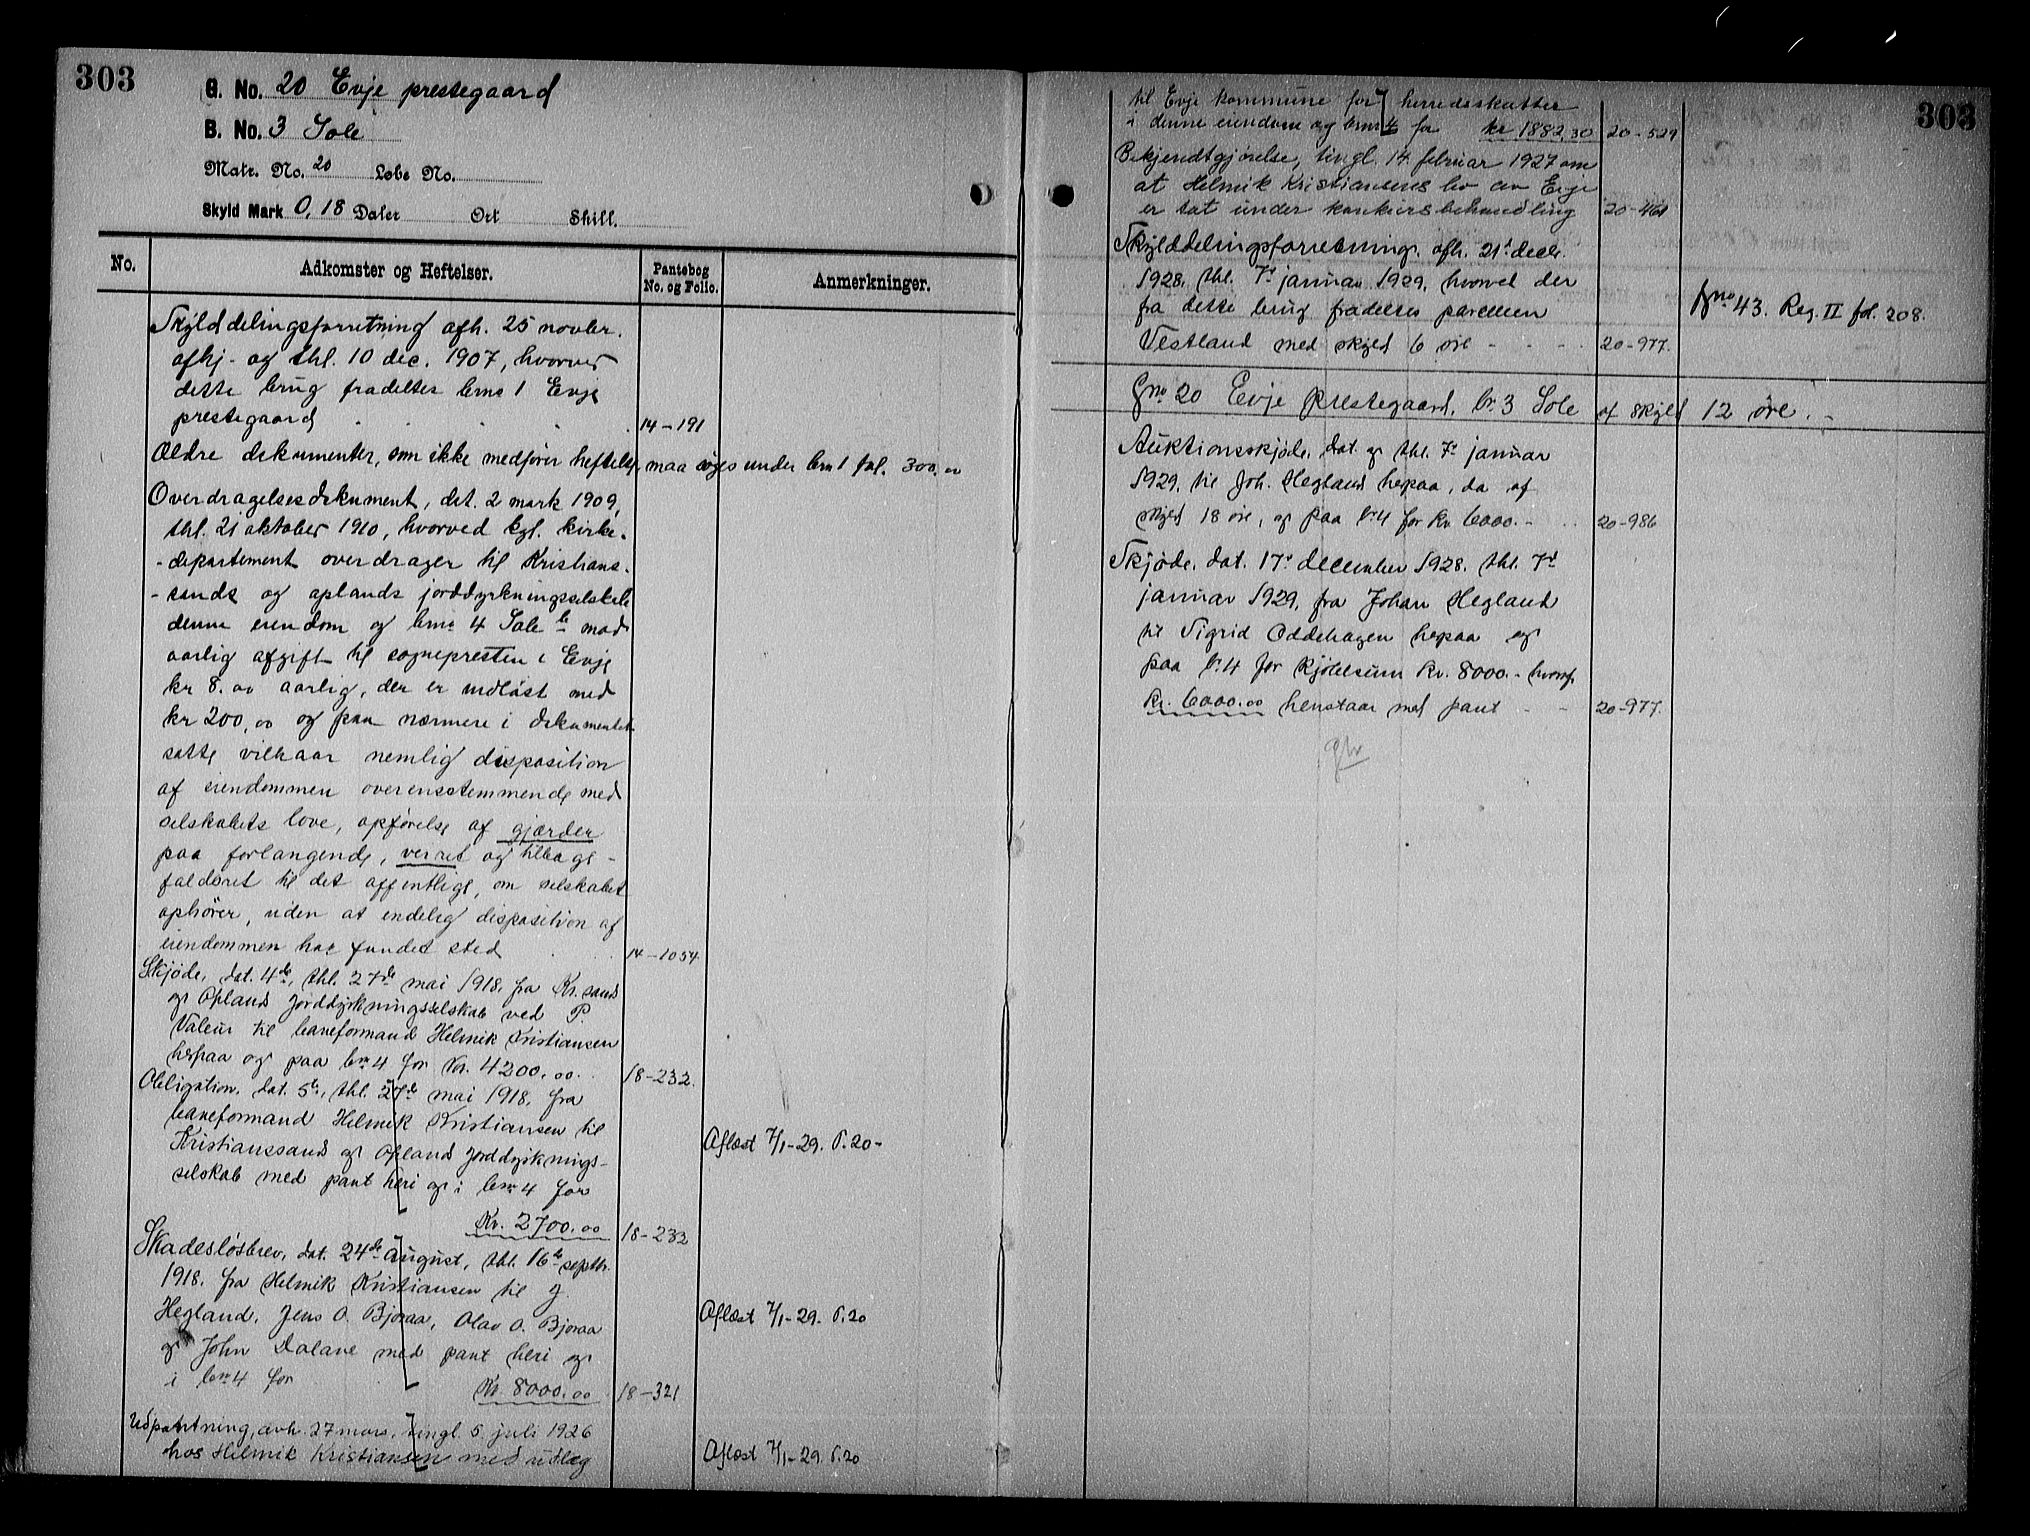 303
G. No. 20 Evje prestegaard
B. No. 3 Sole
Matr. No. 20 Løbe No.
Skyld Mark 0,18 Daler Ort Skill.
No.
Adkomster og Heftelser.
Pantebog No. og Folio.
Anmerkninger.
Skylddelingsforretning afh. 25 novbr.
afhj- og thl. 10 dec. 1907, hvorved
dette brug fradeltes brno 1 Evje
prestegaard . . . . 14-191
Ældre dokumenter, som ikke medfører heftelser, maa søges under brn 1 fol. 300. 00
Overdragelsesdokument, dat. 2 mark 1909,
thl. 21 oktober 1910, hvorved kgl. kirke-
-departement overdrager til Kristians-
-sands og oplands jorddyrkningsselskab
denne eiendom og brno 4 Sole b mod
aarlig afgift til sognepresten i Evje
kr 8.00 aarlig, der er indløst med
kr 200,00 og paa nærmere i dokumentet
satte vilkaar nemlig disposition
af eiendommen overensstemmende med
selskabets love, opførelse af gjærder
paa forlangende, veiret og tilbage-
faldsret til det offentlige, om selskabet
ophører, uden at endelig disposition af
eiendommen har fundet sted . . . 14-1054
Skjøde, dat. 4de, thl. 27de mai 1918. fra Kr.sand
og Opland Jorddyrkningsselskab ved P.
Valeur til baneformand Helmik Kristiansen
herpaa og paa brn 4 for Kr. 4200.00. . 18-232.
Obligation, dat. 5te, thl. 27de mai 1918. fra
baneformand Helmik Kristiansen til
Kristianssand og Opland Jorddyrknings-
selskab med pant heri og i brn 4 for
Kr. 2700.00 18-232
Aflæst 7/1-29. P. 20-
Skadesløsbrev, dat. 24de August, thl. 16de septbr.
1918. fra Helmik Kristiansen til J.
Hegland, Jens O. Bjoraa, Olav O. Bjoraa
og John Dalane med pant heri og
i brn 4 for Kr. 8000.00 18-321
Aflæst 7/1-29. P. 20
Udpantning, avh. 27 mars, tingl. 5. juli 1926
hos Helmik Kristiansen med utlæg
Aflæst 7/1-29. P. 20
303
til Evje kommune for herredsskatter
i denne eiendom og brn 4 for kr 1882,30 20-529
Bekjendtgjørelse, tingl. 14. februar 1927 om
at Helmik Kristiansens bo av Evje
er tat under konkursbehandling 20-461
Skylddelingsforretning. afh. 21d decbr.
1928. thl. 7d januar 1929, hvorved der
fra dette brug fradeltes parcellen
Vestland med skyld 6 øre - - - 20-977.
Bno 43. Reg. II fol. 208.
Gno 20 Evje Prestegaard, br. 3 Sole af skyld 12 øre. -
Auktionsskjøde, dat. og thl. 7d januar
1929. til Joh. Hegland herpaa, da af
skyld 18 øre, og paa br 4 for Kr. 6000.- . . 20-986
Skjøde, dat. 17d december 1928. thl. 7d
januar 1929. fra Johan Hegland
til Sigrid Oddehagen herpaa og
paa br. 4 for kjøbesum Kr. 8000.- hvoraf
Kr. 6000.00 henstaar mod pant - - 20-977.